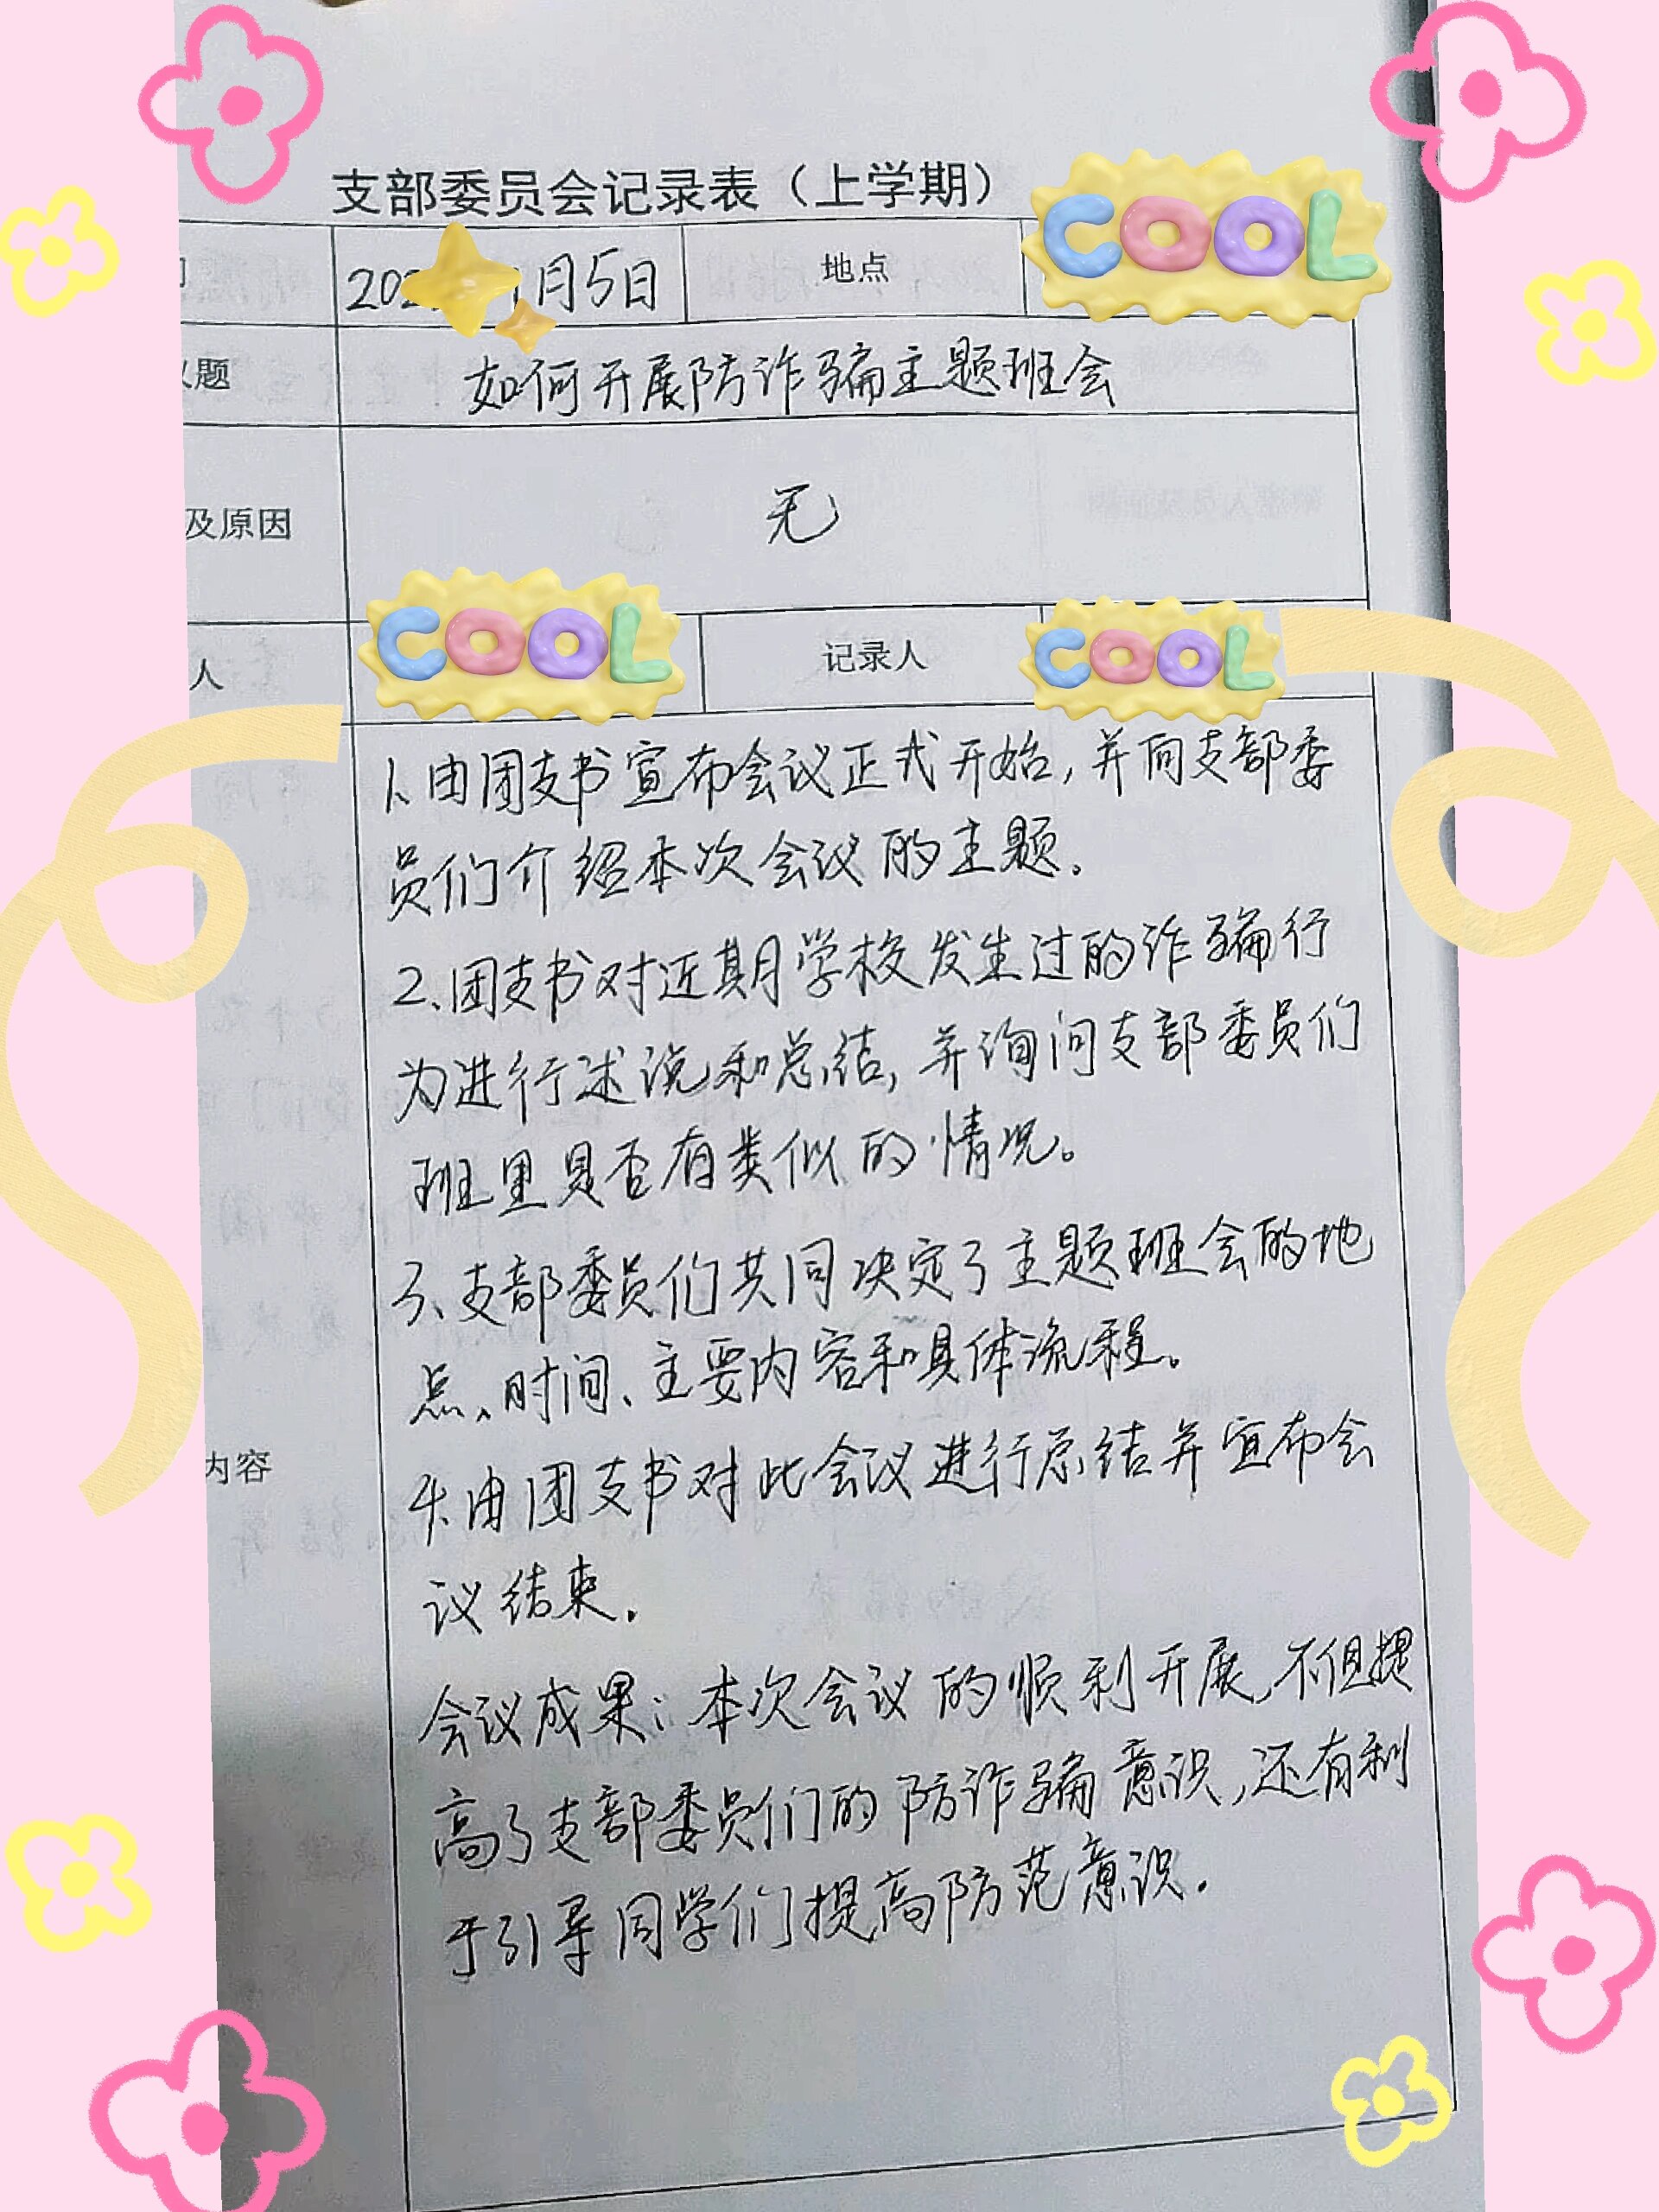 支部委员会记录表（上学期）
月5日 地点 COOL
题 如何开展防诈骗主题班会
及原因 无
人 COOL 记录人 COOL
1、由团支书宣布会议正式开始，并向支部委
员们介绍本次会议的主题。
2、团支书对近期学校发生过的诈骗行
为进行述说和总结，并询问支部委员们
班里是否有类似的情况。
3、支部委员们共同决定了主题班会的地
点、时间、主要内容和具体流程。
内容
4、由团支书对此会议进行总结并宣布会
议结束。
会议成果：本次会议的顺利开展，不但提
高了支部委员们的防诈骗意识，还有利
于引导同学们提高防范意识。